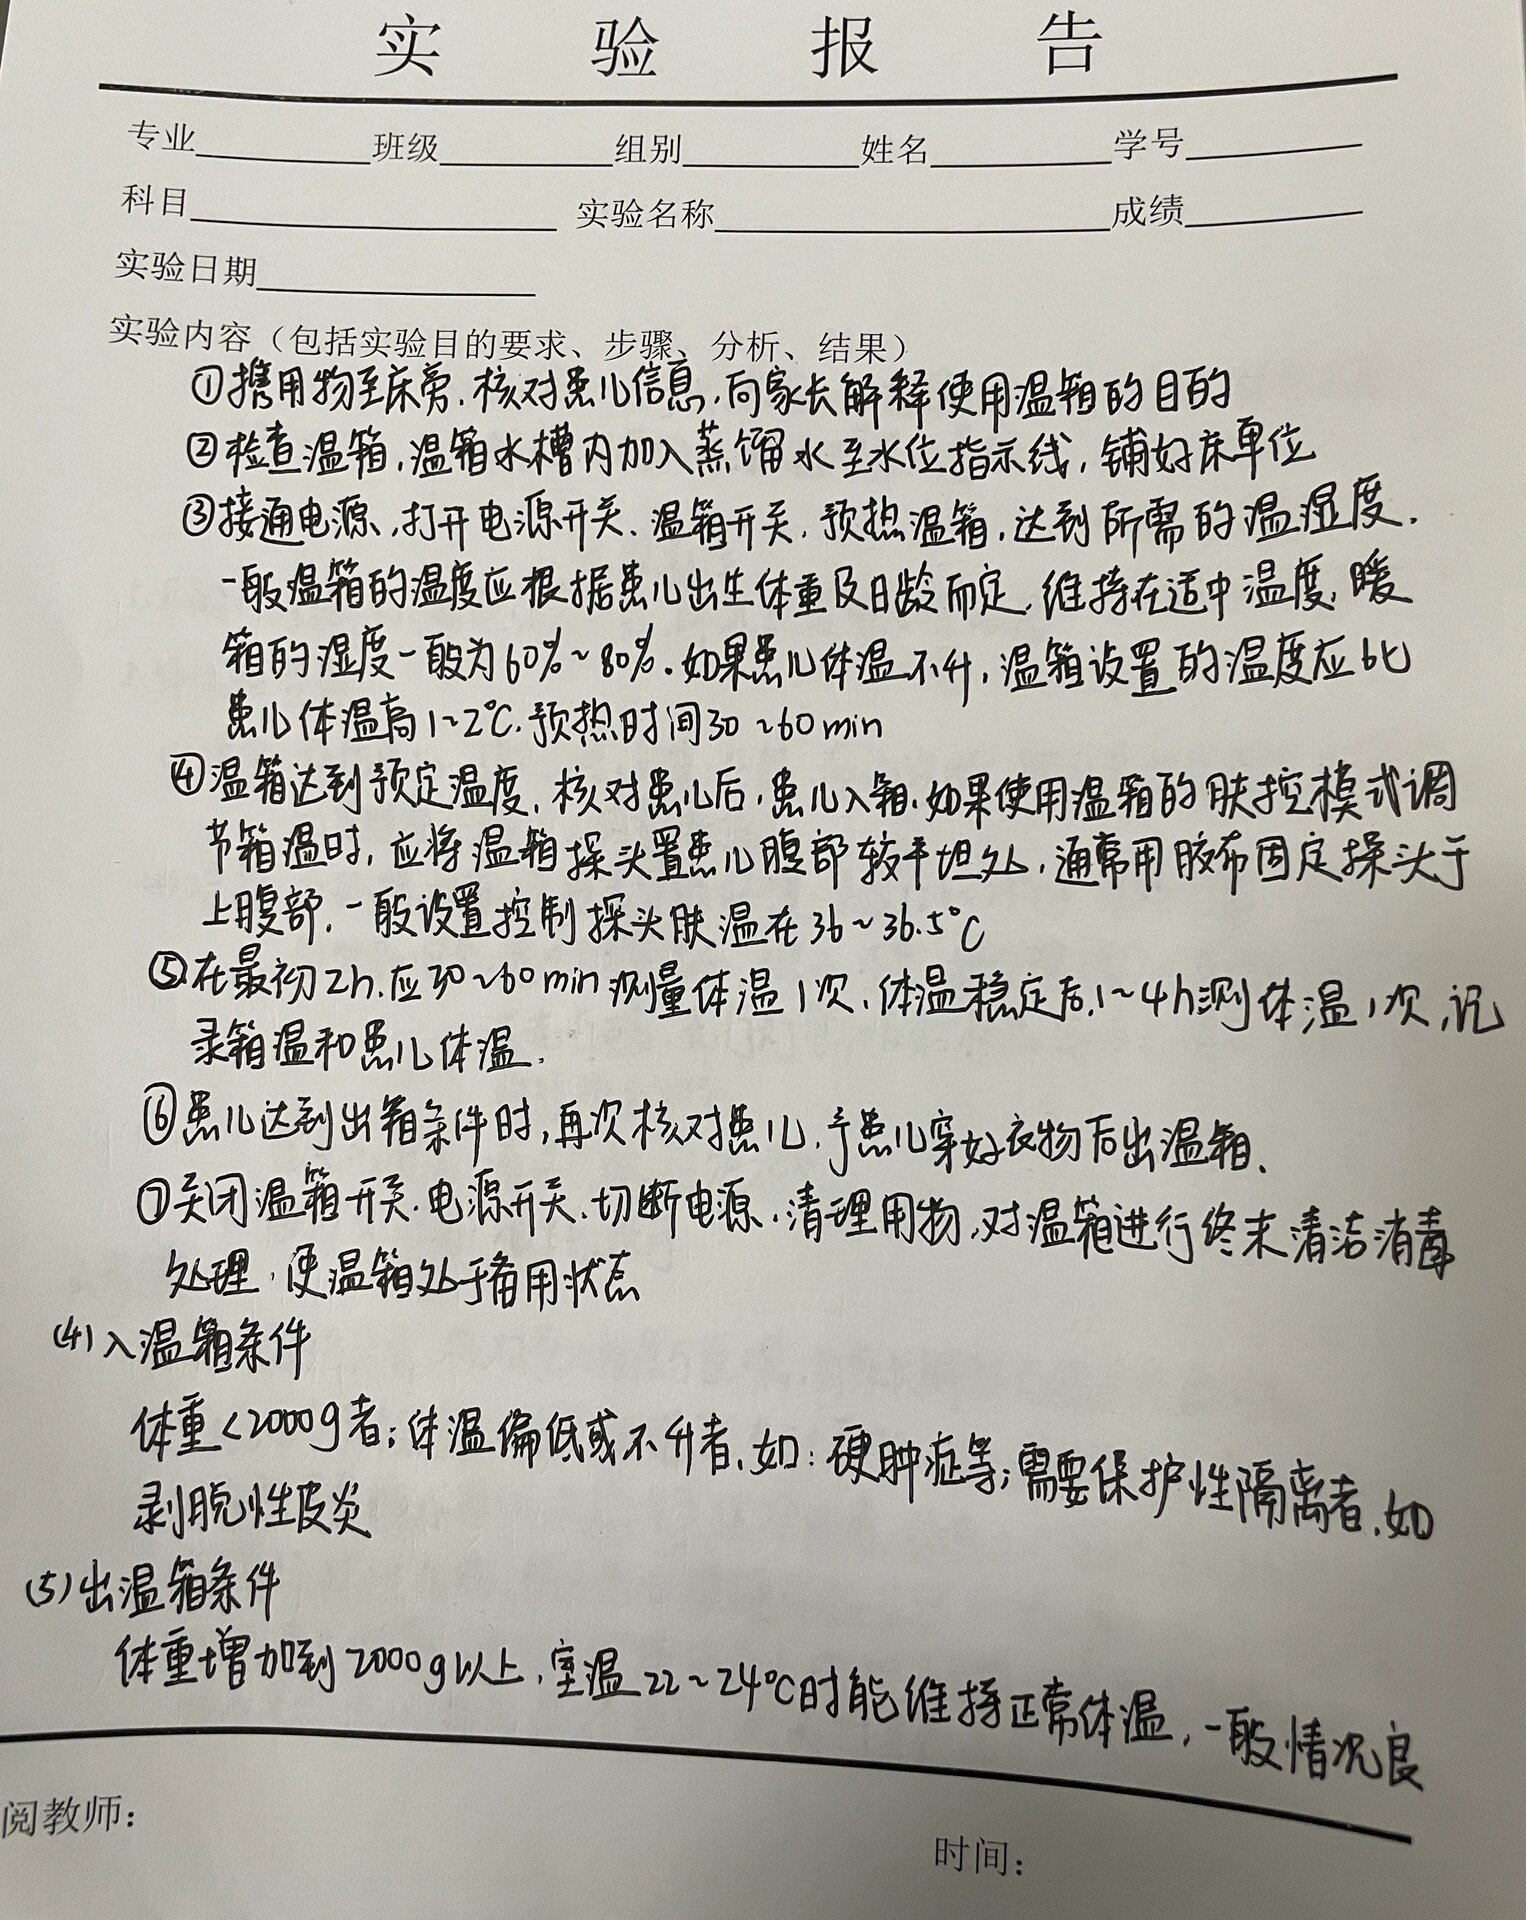 实验报告
专业 班级 组别 姓名 学号
科目 实验名称 成绩
实验日期
实验内容（包括实验目的要求、步骤、分析、结果）
①携用物至床旁，核对患儿信息，向家长解释使用温箱的目的
②检查温箱，温箱水槽内加入蒸馏水至水位指示线，铺好床单位
③接通电源，打开电源开关、温箱开关，预热温箱，达到所需的温湿度．
一般温箱的温度应根据患儿出生体重及日龄而定，维持在适中温度，暖
箱的湿度一般为60%~80%．如果患儿体温不升，温箱设置的温度应比
患儿体温高1~2℃．预热时间30~60min
④温箱达到预定温度，核对患儿后，患儿入箱．如果使用温箱的肤控模式调
节箱温时，应将温箱探头置患儿腹部较平坦处，通常用胶布固定探头于
上腹部，一般设置控制探头肤温在36~36.5℃
⑤在最初2h，应30~60min测量体温1次，体温稳定后，1~4h测体温1次，记
录箱温和患儿体温．
⑥患儿达到出箱条件时，再次核对患儿，予患儿穿好衣物后出温箱、
⑦关闭温箱开关、电源开关、切断电源，清理用物，对温箱进行终末清洁消毒
处理，使温箱处于备用状态
(4)入温箱条件
体重<2000g者；体温偏低或不升者，如：硬肿症等；需要保护性隔离者，如
剥脱性皮炎
(5)出温箱条件
体重增加到2000g以上，室温22~24℃时能维持正常体温，一般情况良
阅教师：
时间：